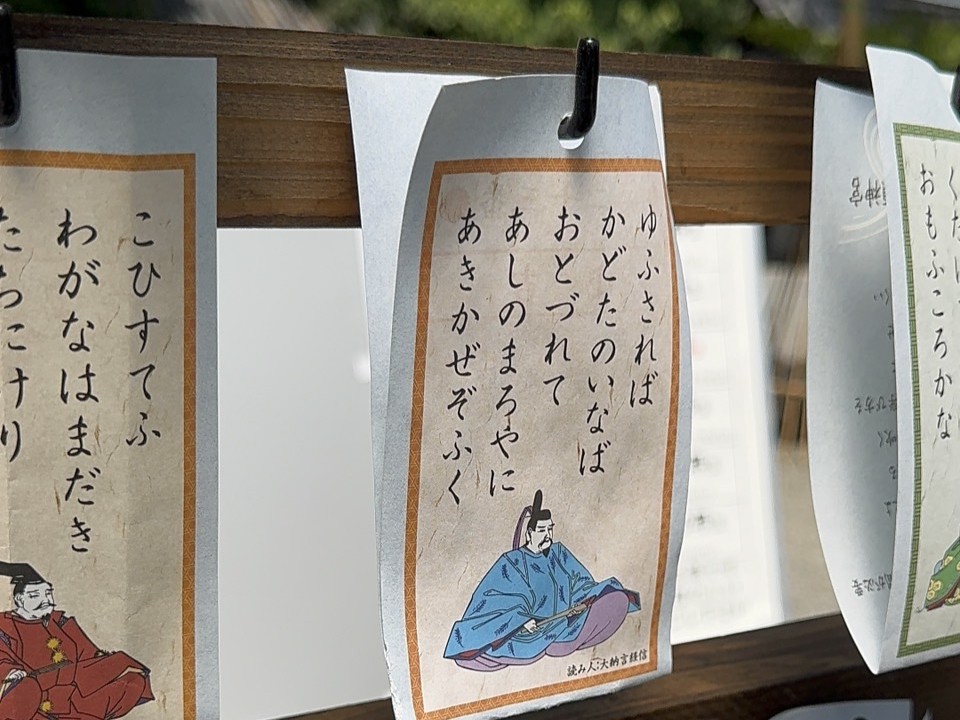 ゆふされば
かどたのいなば
おとづれて
あしのまろやに
あきかぜぞふく
読み人:大納言経信
こひすてふ
わがなはまだき
たちにけり
おもふころかな
神宮